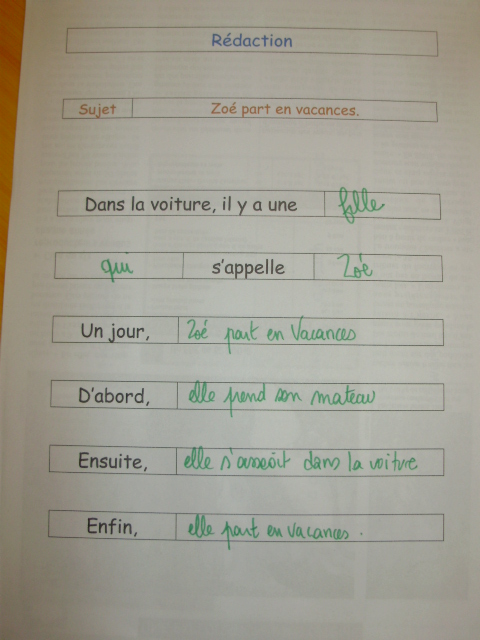 Rédaction
Sujet Zoé part en vacances.
Dans la voiture, il y a une fille
qui s'appelle Zoé
Un jour, Zoé part en Vacances
D'abord, elle prend son mateau
Ensuite, elle s'asseoit dans la voiture
Enfin, elle part en vacances.